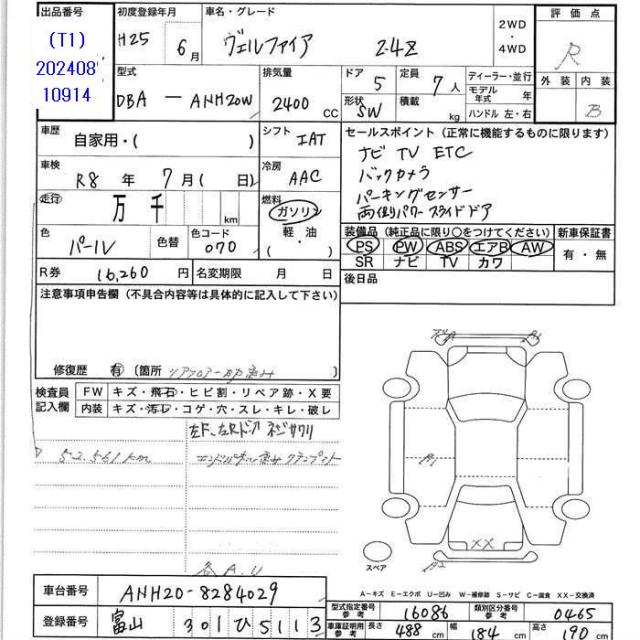 出品番号 初度登録年月 車名・グレード 評価点
(T1) H25 6月 ヴェルファイア 2.4Z 2WD・4WD R
202408
10914
型式 排気量 ドア 5 定員 7人 ディーラー・並行 外装 内装
DBA — ANH20W 2400cc 形状 SW 積載 kg モデル年式 年 B
ハンドル 左・右
車歴 自家用・( ) シフト IAT セールスポイント(正常に機能するものに限ります)
車検 R8年 7月( 日) 冷房 AAC ナビ TV ETC
バックカメラ
パーキングセンサー
両側パワースライドドア
走行 万 千 km 燃料 ガソリン・軽・油 ( )
色 パール 色替 色コード 070
装備品(純正品に限り○をつけてください) 新車保証書
PS PW ABS エアB AW 有・無
SR ナビ TV カワ
R券 16,260円 名変期限 月 日 後日品
注意事項申告欄(不具合内容等は具体的に記入して下さい)
修復歴 有(箇所 リアフロアー
検査員記入欄 FW キズ・飛石・ヒビ割・リペア跡・X要
内装 キズ・汚レ・コゲ・穴・スレ・キレ・破レ
左F、左Rドア ネジサワリ
52,561km
各A.U
A2
A1
XX
スペア
A-キズ E-エクボ U-凹み W-補修跡 S-サビ C-腐食 XX-交換済
車台番号 ANH20-8284029
登録番号 富山 301 ひ 5113
型式指定番号 参考 16086 類別区分番号 参考 0465
車庫証明用 参考 長さ 488cm 幅 184cm 高さ 190cm